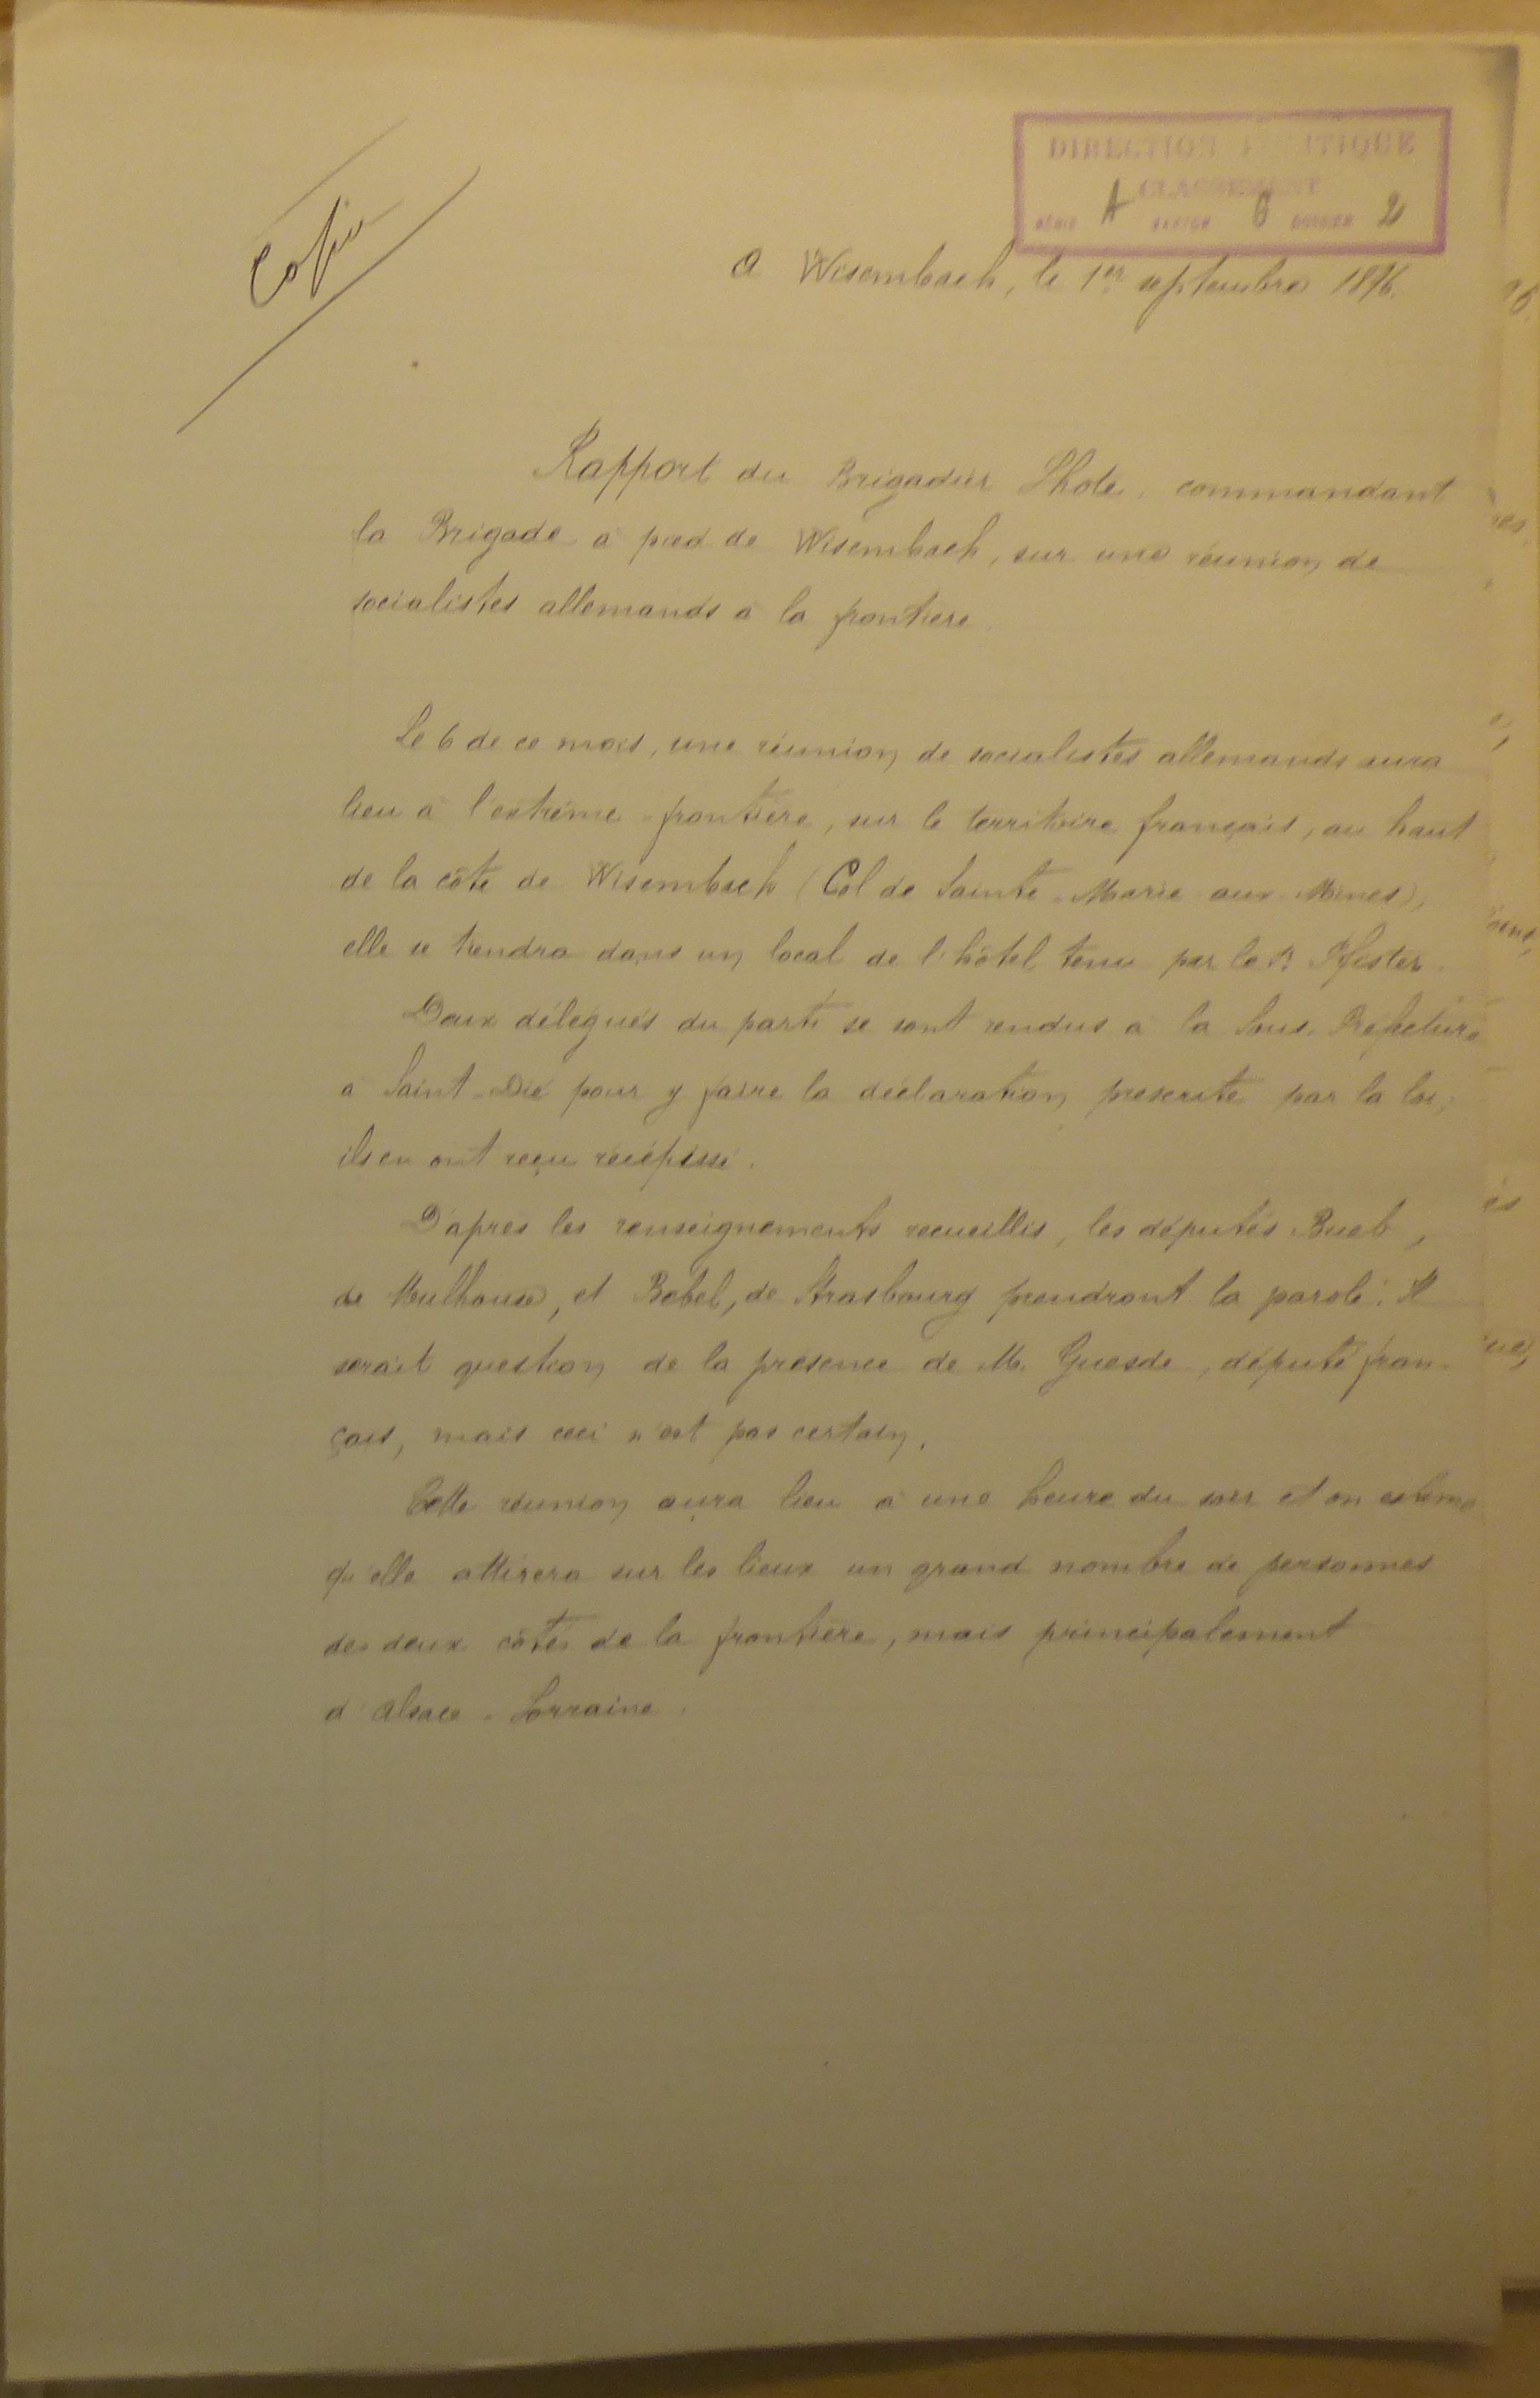 DIRECTION POLITIQUE
CLASSEMENT
SÉRIE A CARTON 6 DOSSIER 2
Copie
A Wisembach, le 1er septembre 1896.
Rapport du Brigadier Lhote, commandant
la Brigade à pied de Wisembach, sur une réunion de
socialistes allemands à la frontière.
Le 6 de ce mois, une réunion de socialistes allemands aura
lieu à l'extrême-frontière, sur le territoire français, au haut
de la côte de Wisembach (Col de Sainte-Marie aux-Mines),
elle se tiendra dans un local de l'hôtel tenu par le Sr. Pfister.
Deux délégués du parti se sont rendus à la Sous-Préfecture
à Saint-Dié pour y faire la déclaration prescrite par la loi;
ils en ont reçu récépissé.
D'après les renseignements recueillis, les députés Bueb,
de Mulhouse, et Bebel, de Strasbourg prendront la parole. Il
serait question de la présence de M. Guesde, député fran-
çais, mais ceci n'est pas certain.
Cette réunion aura lieu à une heure du soir et on estime
qu'elle attirera sur les lieux un grand nombre de personnes
des deux côtés de la frontière, mais principalement
d'Alsace-Lorraine.